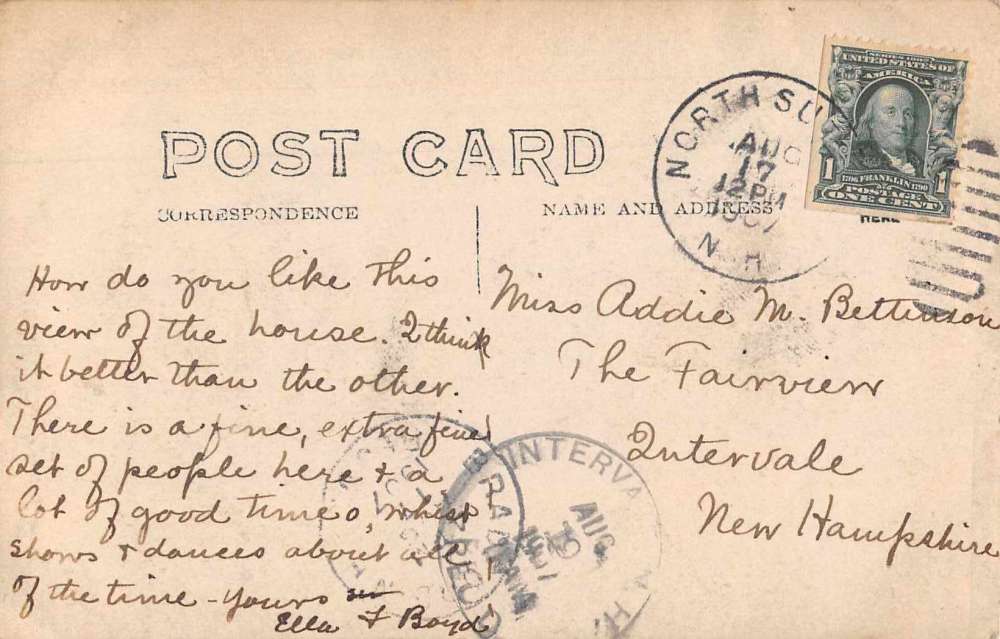 POST CARD
CORRESPONDENCE
NAME AND ADDRESS
HERE
NORTH SU
AUG
17
12 PM
1907
N.H.
SERIES 1902
UNITED STATES OF
AMERICA
1706 FRANKLIN 1790
1 POSTAGE 1
ONE CENT
How do you like this
view of the house. I think
it better than the other.
There is a fine, extra fine
set of people here + a
lot of good times, whist
shows + dances about all
of the time - Yours
Ella F Boyd
Miss Addie M. Bettinson
The Fairview
Intervale
New Hampshire
INTERVA
AUG
REC'D